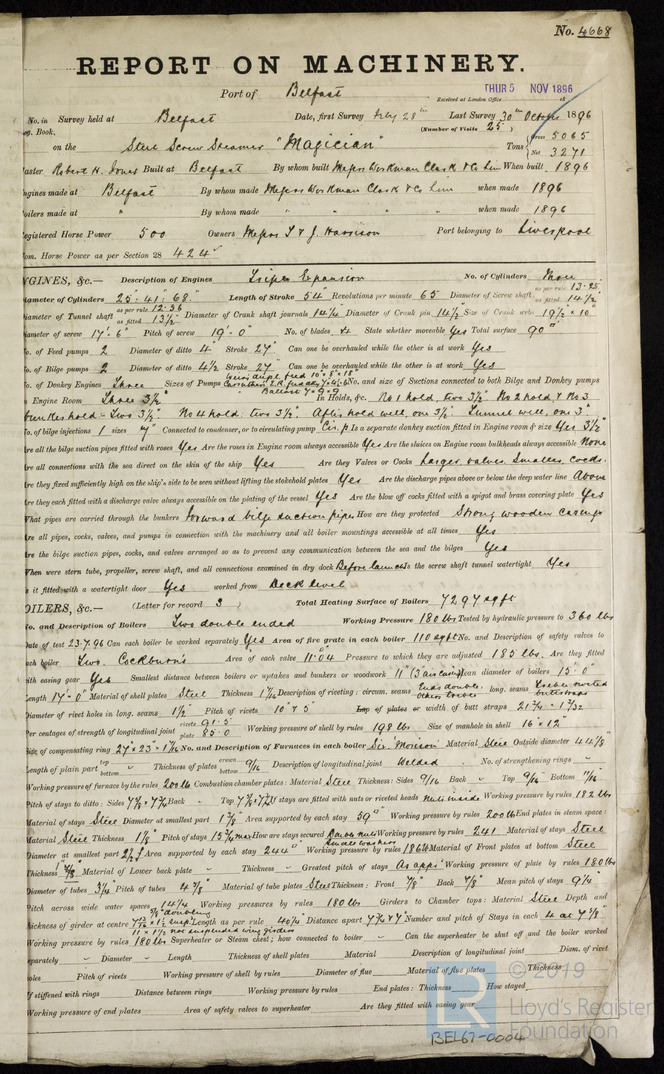 No. 4668
REPORT ON MACHINERY.
Port of Belfast
THUR 5 NOV 1896
Received at London Office 18
No. in Survey held at Belfast Date, first Survey Last Survey 30th October 1896
Book. (Number of Visits 25)
on the Steel Screw Steamer "Magician" Tons Gross 5065
Net 3271
Master Robert H. Jones Built at Belfast By whom built Messrs Workman Clark & Co Lim When built 1896
Engines made at Belfast By whom made Messrs Workman Clark & Co Lim when made 1896
Boilers made at " By whom made " " " when made 1896
Registered Horse Power 500 Owners Messrs T & J. Harrison Port belonging to Liverpool
Nom. Horse Power as per Section 28 424
ENGINES, &c.— Description of Engines Triple Expansion No. of Cylinders Three
Diameter of Cylinders 25" : 41" : 68" Length of Stroke 54" Revolutions per minute 65 Diameter of Screw shaft as per rule 13.25
as fitted 14½"
Diameter of Tunnel shaft as per rule 12.56 as fitted 13½" Diameter of Crank shaft journals 14½" Diameter of Crank pin 14½" Size of Crank webs 19½ x 10"
Diameter of screw 17'-6" Pitch of screw 19'-0" No. of blades 4 State whether moveable Yes Total surface 90
No. of Feed pumps 2 Diameter of ditto 4" Stroke 27" Can one be overhauled while the other is at work Yes
No. of Bilge pumps 2 Diameter of ditto 4½ Stroke 27" Can one be overhauled while the other is at work Yes
No. of Donkey Engines Three Sizes of Pumps No. and size of Suctions connected to both Bilge and Donkey pumps
Ballast 7 x 9 x 9
In Engine Room Three 3½" In Holds, &c. No 1 hold, two 3½" No 2 hold & No 3
bunker hold - Two 3½" No 4 hold; two 3½". After hold well, one 3½" Tunnel well, one 3"
No. of bilge injections 1 sizes 7" Connected to condenser, or to circulating pump Cir. p Is a separate donkey suction fitted in Engine room & size Yes 3½"
Are all the bilge suction pipes fitted with roses Yes Are the roses in Engine room always accessible Yes Are the sluices on Engine room bulkheads always accessible None
Are all connections with the sea direct on the skin of the ship Yes Are they Valves or Cocks Larger, valves. Smaller, cocks.
Are they fixed sufficiently high on the ship's side to be seen without lifting the stokehold plates Yes Are the discharge pipes above or below the deep water line Above
Are they each fitted with a discharge valve always accessible on the plating of the vessel Yes Are the blow off cocks fitted with a spigot and brass covering plate Yes
What pipes are carried through the bunkers Forward bilge suction pipes How are they protected Strong wooden casings
Are all pipes, cocks, valves, and pumps in connection with the machinery and all boiler mountings accessible at all times Yes
Are the bilge suction pipes, cocks, and valves arranged so as to prevent any communication between the sea and the bilges Yes
When were stern tube, propeller, screw shaft, and all connections examined in dry dock Before launch Is the screw shaft tunnel watertight Yes
Is it fitted with a watertight door Yes worked from Deck level
BOILERS, &c.— (Letter for record 3 ) Total Heating Surface of Boilers 7297 sq ft
No. and Description of Boilers Two double ended Working Pressure 180 lbs Tested by hydraulic pressure to 360 lbs
Date of test 23.7.96 Can each boiler be worked separately Yes Area of fire grate in each boiler 110 sq ft No. and Description of safety valves to
each boiler Two. Cockburn's Area of each valve 11.04 Pressure to which they are adjusted 185 lbs. Are they fitted
with easing gear Yes Smallest distance between boilers or uptakes and bunkers or woodwork 11" Mean diameter of boilers 15'-0"
Length 17'-0" Material of shell plates Steel Thickness Description of riveting: circum. seams Ends double. long. seams Treble riveted
butt straps
Diameter of rivet holes in long. seams 1½" Pitch of rivets Lap of plates or width of butt straps
Per centages of strength of longitudinal joint rivets 91.5 plate 85.0 Working pressure of shell by rules 198 lb Size of manhole in shell 16" x 12"
Size of compensating ring No. and Description of Furnaces in each boiler Six "Morison" Material Steel Outside diameter
Length of plain part top bottom Thickness of plates crown bottom 9/16 Description of longitudinal joint Welded No. of strengthening rings -
Working pressure of furnace by the rules 200 lb Combustion chamber plates: Material Steel Thickness: Sides 9/16 Back - Top 9/16 Bottom 11/16"
Pitch of stays to ditto: Sides Back - Top If stays are fitted with nuts or riveted heads Nuts inside Working pressure by rules 182 lbs
Material of stays Steel Diameter at smallest part Area supported by each stay 59 Working pressure by rules 200 lb End plates in steam space:
Material Steel Thickness 1⅛" Pitch of stays How are stays secured Double nuts Working pressure by rules 241 Material of stays Steel
Diameter at smallest part Area supported by each stay 244 Working pressure by rules 186 lb Material of Front plates at bottom Steel
Thickness ⅞" Material of Lower back plate - Thickness - Greatest pitch of stays As app Working pressure of plate by rules 180 lbs
Diameter of tubes 3¼" Pitch of tubes Material of tube plates Steel Thickness: Front ⅞" Back Mean pitch of stays 9¼"
Pitch across wide water spaces 14¼" Working pressures by rules 180 lbs Girders to Chamber tops: Material Steel Depth and
thickness of girder at centre Length as per rule 40¾" Distance apart Number and pitch of Stays in each 4 at 7⅞"
Working pressure by rules 180 lbs Superheater or Steam chest; how connected to boiler - Can the superheater be shut off and the boiler worked
separately - Diameter - Length Thickness of shell plates Material Description of longitudinal joint Diam. of rivet
holes Pitch of rivets Working pressure of shell by rules Diameter of flue Material of flue plates Thickness
If stiffened with rings Distance between rings Working pressure by rules End plates: Thickness How stayed
Working pressure of end plates Area of safety valves to superheater Are they fitted with easing gear
© 2019
Lloyd's Register
Foundation
BEL67-0004